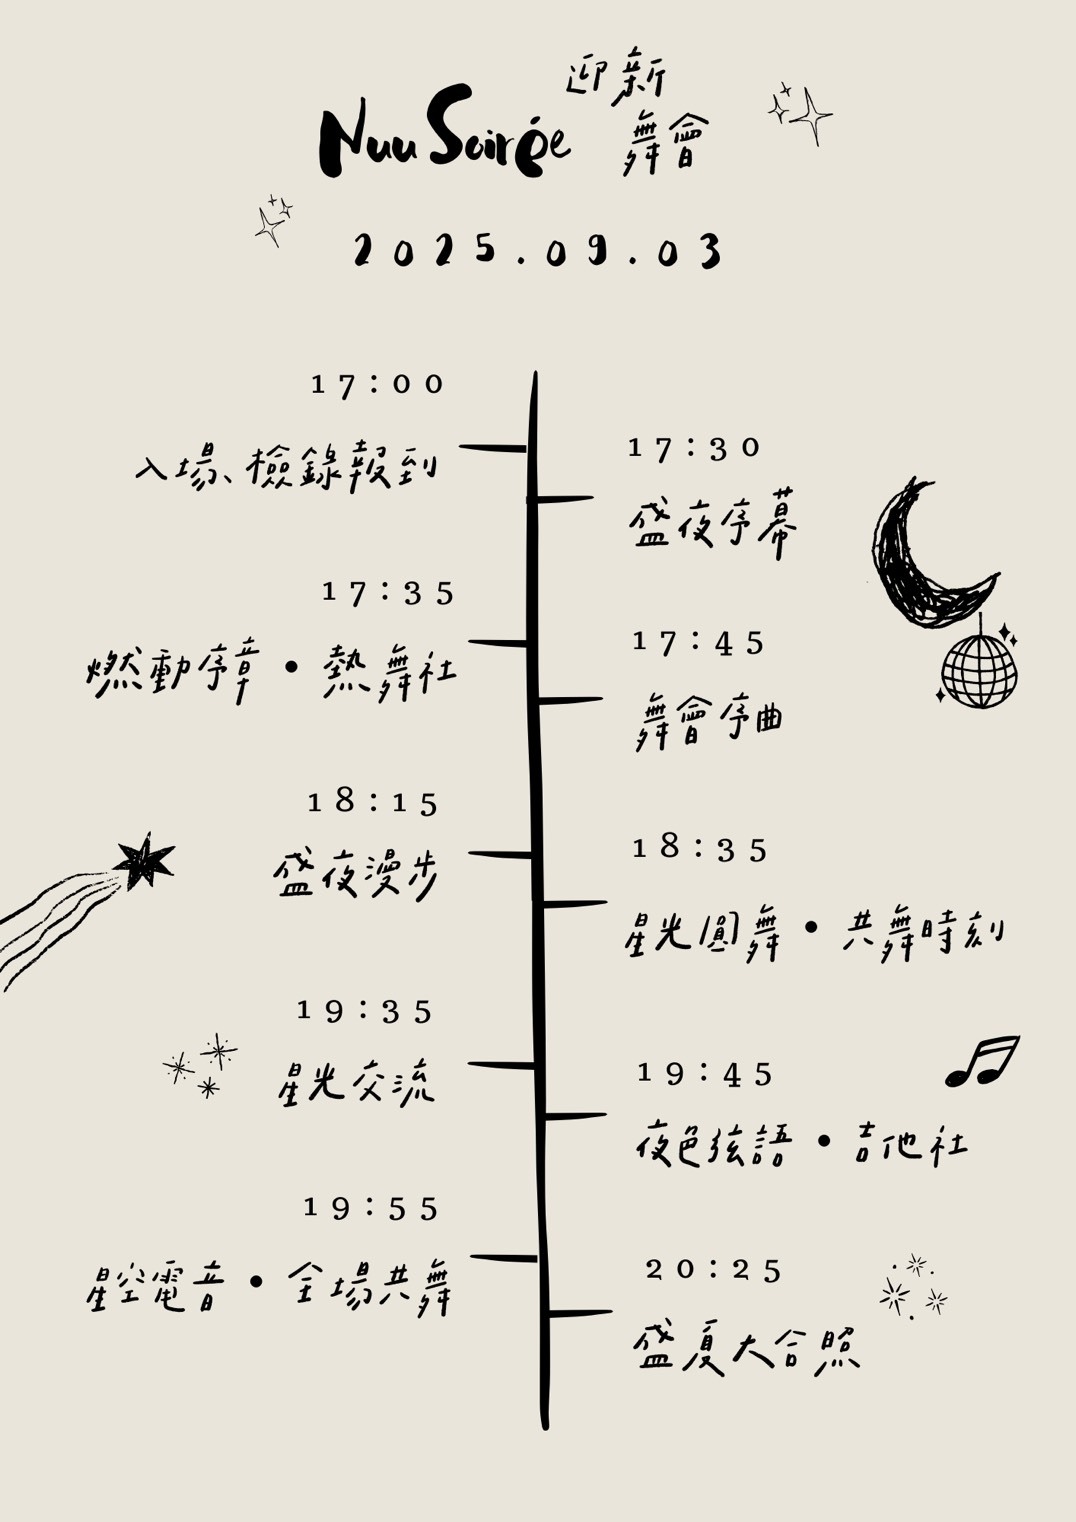 Nuu Soirée 迎新
舞會
2025.09.03
17:00
入場、檢錄報到
17:30
盛夜序幕
17:35
燃動序章 • 熱舞社
17:45
舞會序曲
18:15
盛夜漫步
18:35
星光圓舞 • 共舞時刻
19:35
星光交流
19:45
夜色弦語 • 吉他社
19:55
星空電音 • 全場共舞
20:25
盛夏大合照